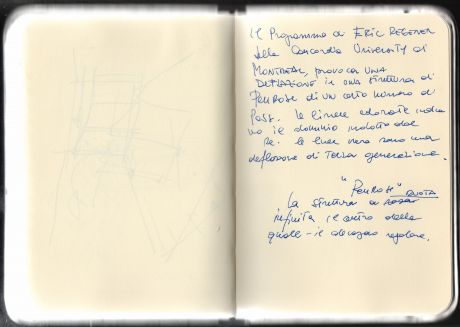 Il Programma di ERIC REGENER
della Concordia University di
MONTREAL, provoca UNA
DEFLAZIONE in una struttura di
PENROSE di un certo numero di
Pass. le linee colorate indica
no il dominio indotto dal
Re. le linee nere sono una
deflazione di Terza generazione.
"PENROSE"
La struttura a RUOTA
infinita il centro della
quale - il decagono regolare.